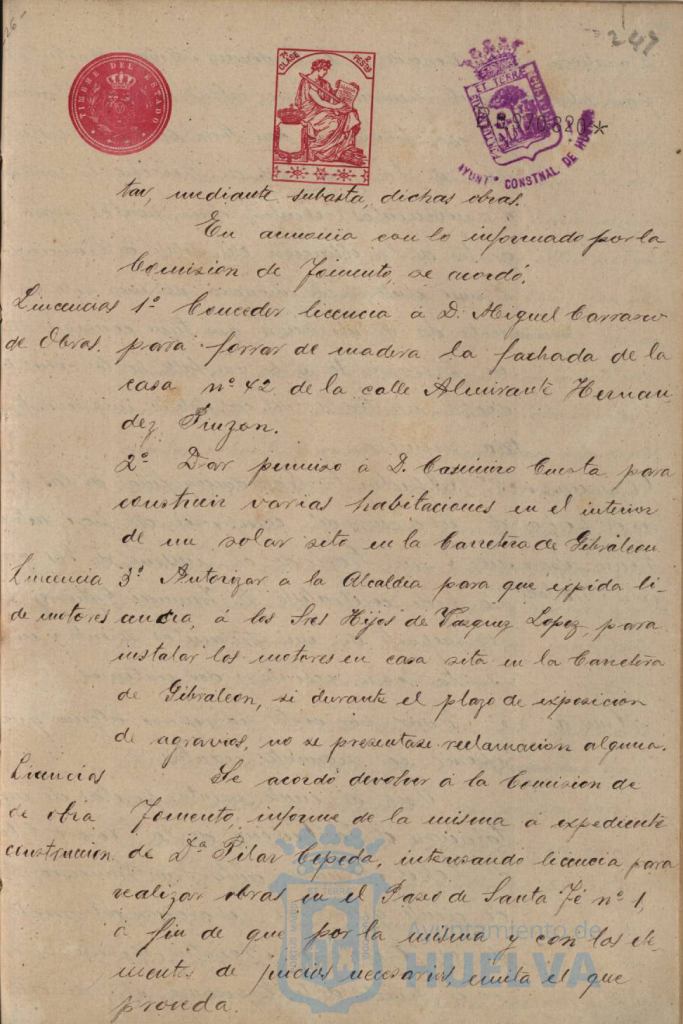 247
TIMBRE DEL ESTADO
7ª CLASE
PESETAS
AYUNTº CONSTNAL DE HUELVA
tar, mediante subasta, dichas obras.
En armonia con lo informado por la
Comision de Fomento, se acordó.
Lincencias 1º Conceder licencia á D. Miguel Carrasco
de Obras. para forrar de madera la fachada de la
casa nº 42 de la calle Almirante Hernan-
dez Pinzon.
2º Dar permiso á D. Casimiro Cuesta para
construir varias habitaciones en el interior
de un solar sito en la Carretera de Gibraleon
Lincencia 3º Autorizar á la Alcaldia para que expida li-
de motores cencia, á los Sres Hijos de Vazquez Lopez, para
instalar los motores en casa sita en la Carretera
de Gibraleon, si durante el plazo de exposicion
de agravios, no se presentase reclamacion alguna.
Licencias Se acordó devolver á la Comision de
de obra Fomento, informe de la misma á expediente
construccion de Dª Pilar Cepeda, interesando licencia para
realizar obras en el Paseo de Santa Fé nº 1,
á fin de que por la misma y con los ele-
mentos de juicios necesarios, emita el que
proceda.
Ayuntamiento de
HUELVA